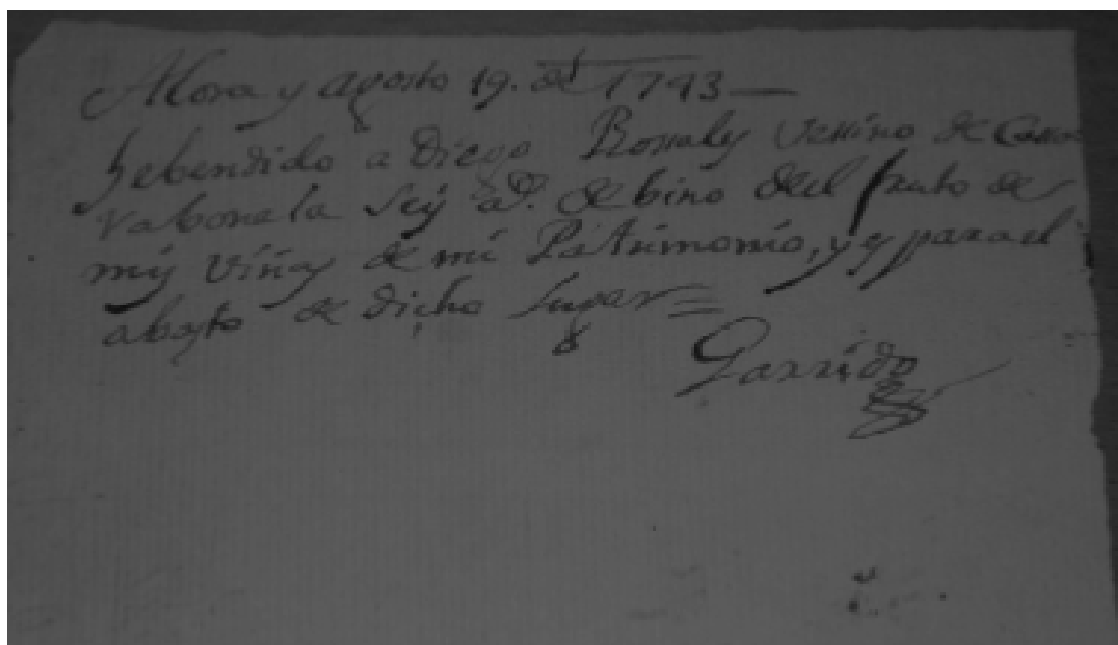 Alora y agosto 19. de 1793—
hebendido a Diego Rosaly vesino de Casa
rabonela seys a.s de bino del fruto de
mis viñas de mi Patrimonio, y es para el
abasto de dicho lugar=
Garrido